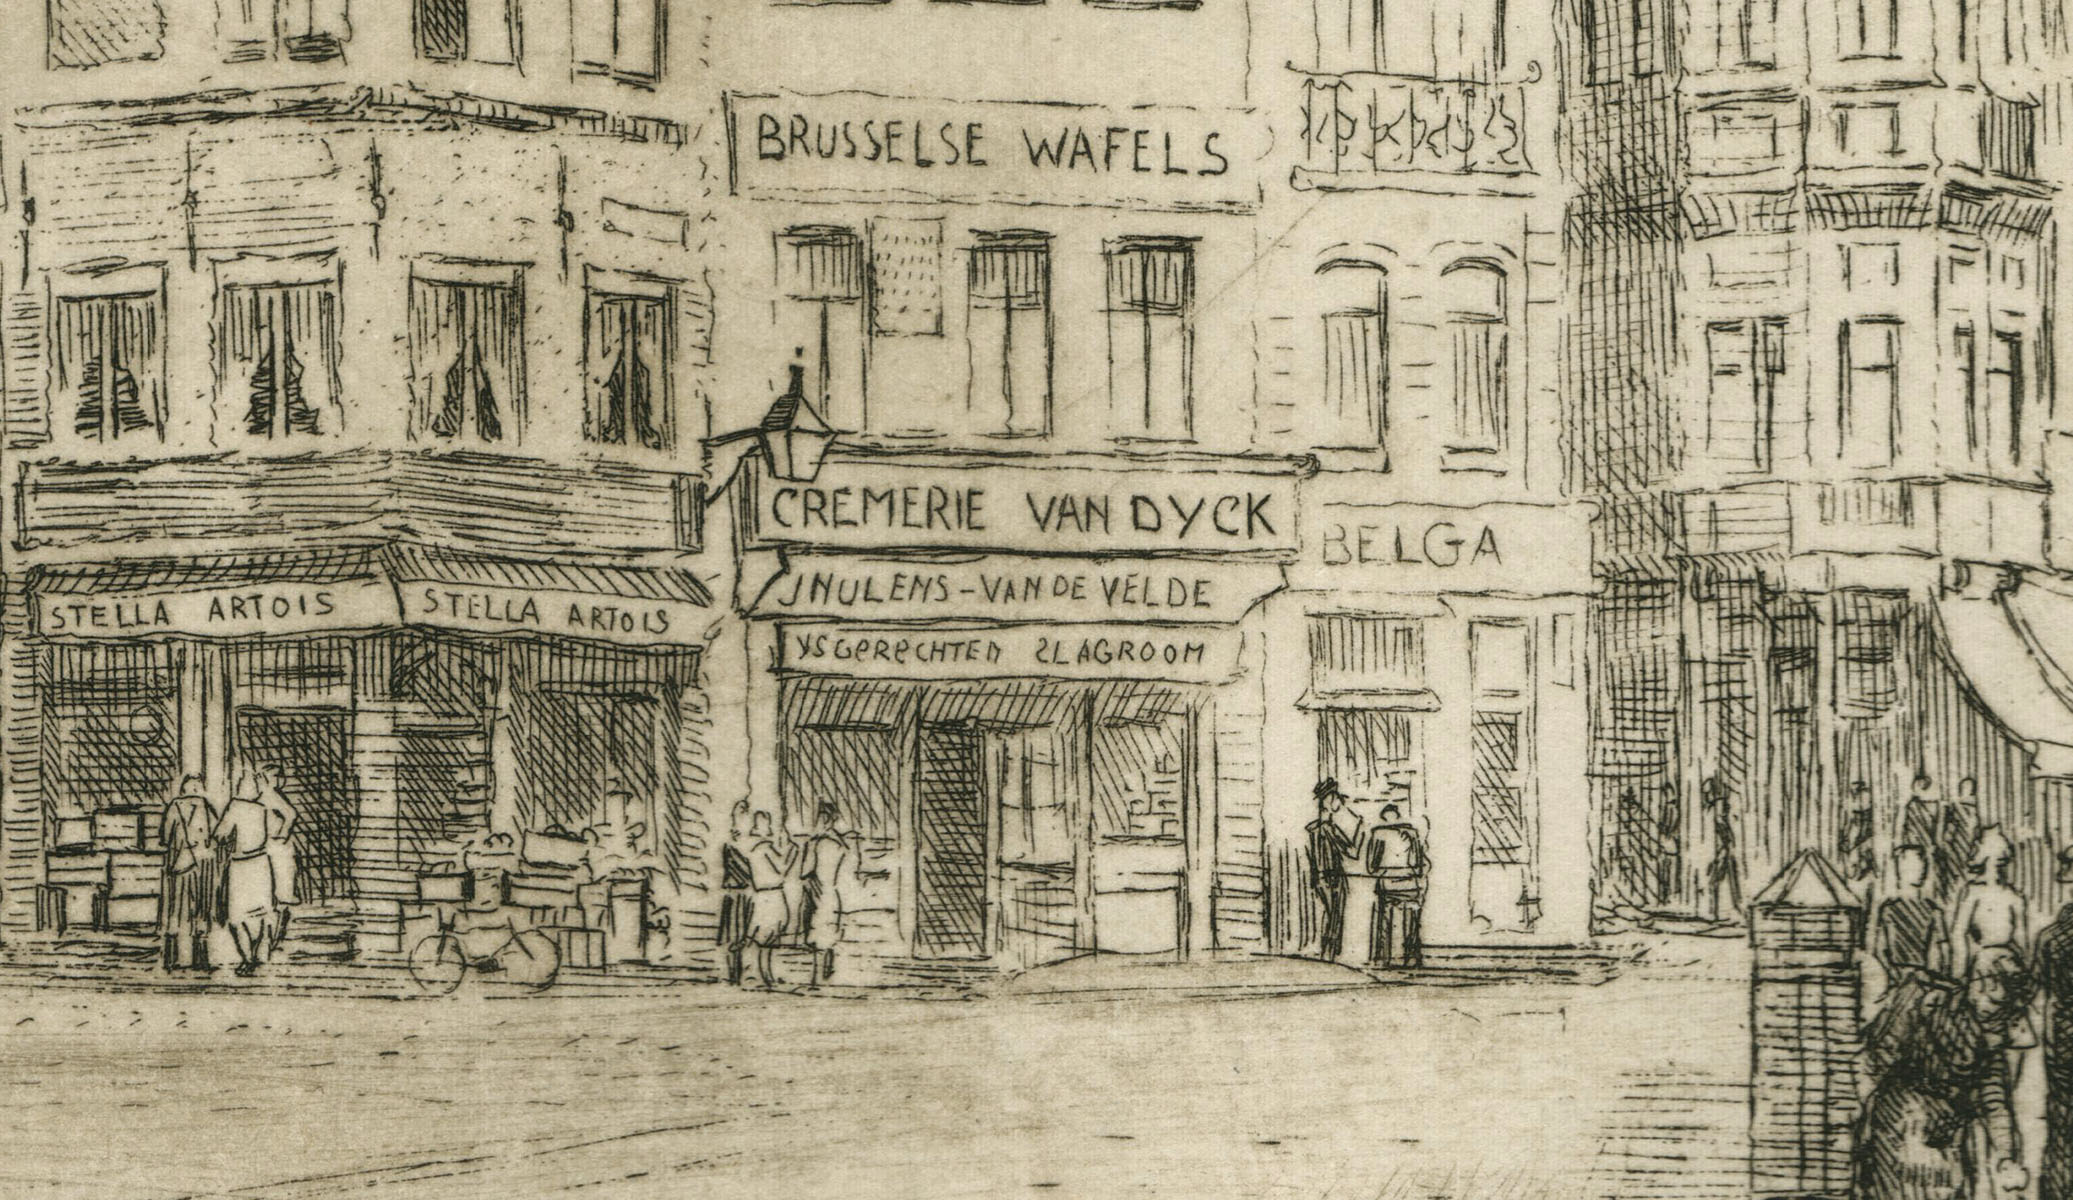 BRUSSELSE WAFELS
CREMERIE VAN DYCK
BELGA
JNULENS-VAN DE VELDE
STELLA ARTOIS STELLA ARTOIS
YSGERECHTEN SLAGROOM